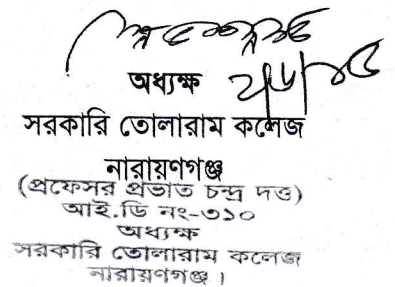 অধ্যক্ষ
সরকারি তোলারাম কলেজ
নারায়ণগঞ্জ
(প্রফেসর প্রভাত চন্দ্র দত্ত)
আই.ডি নং-৩১০
অধ্যক্ষ
সরকারি তোলারাম কলেজ
নারায়ণগঞ্জ।